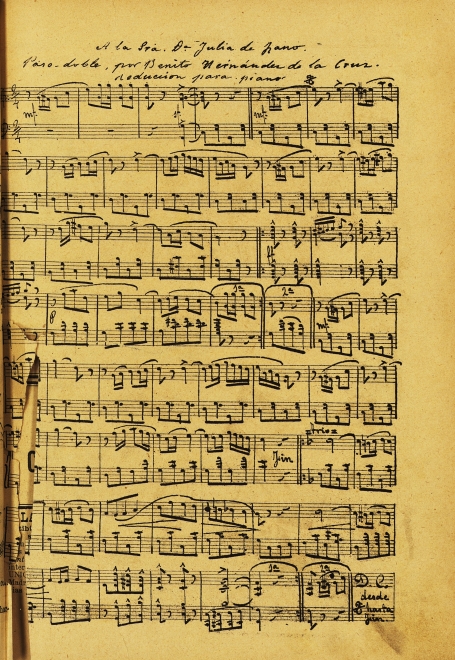 A la Sra. Da Julia de
Paso-doble, por Benito Hernández de la Cruz.
reducción para piano
mf.
mf.
ff
p
1a
2a
mf
Trio
Fin
1a
2a
D. C.
desde
hasta
Fin